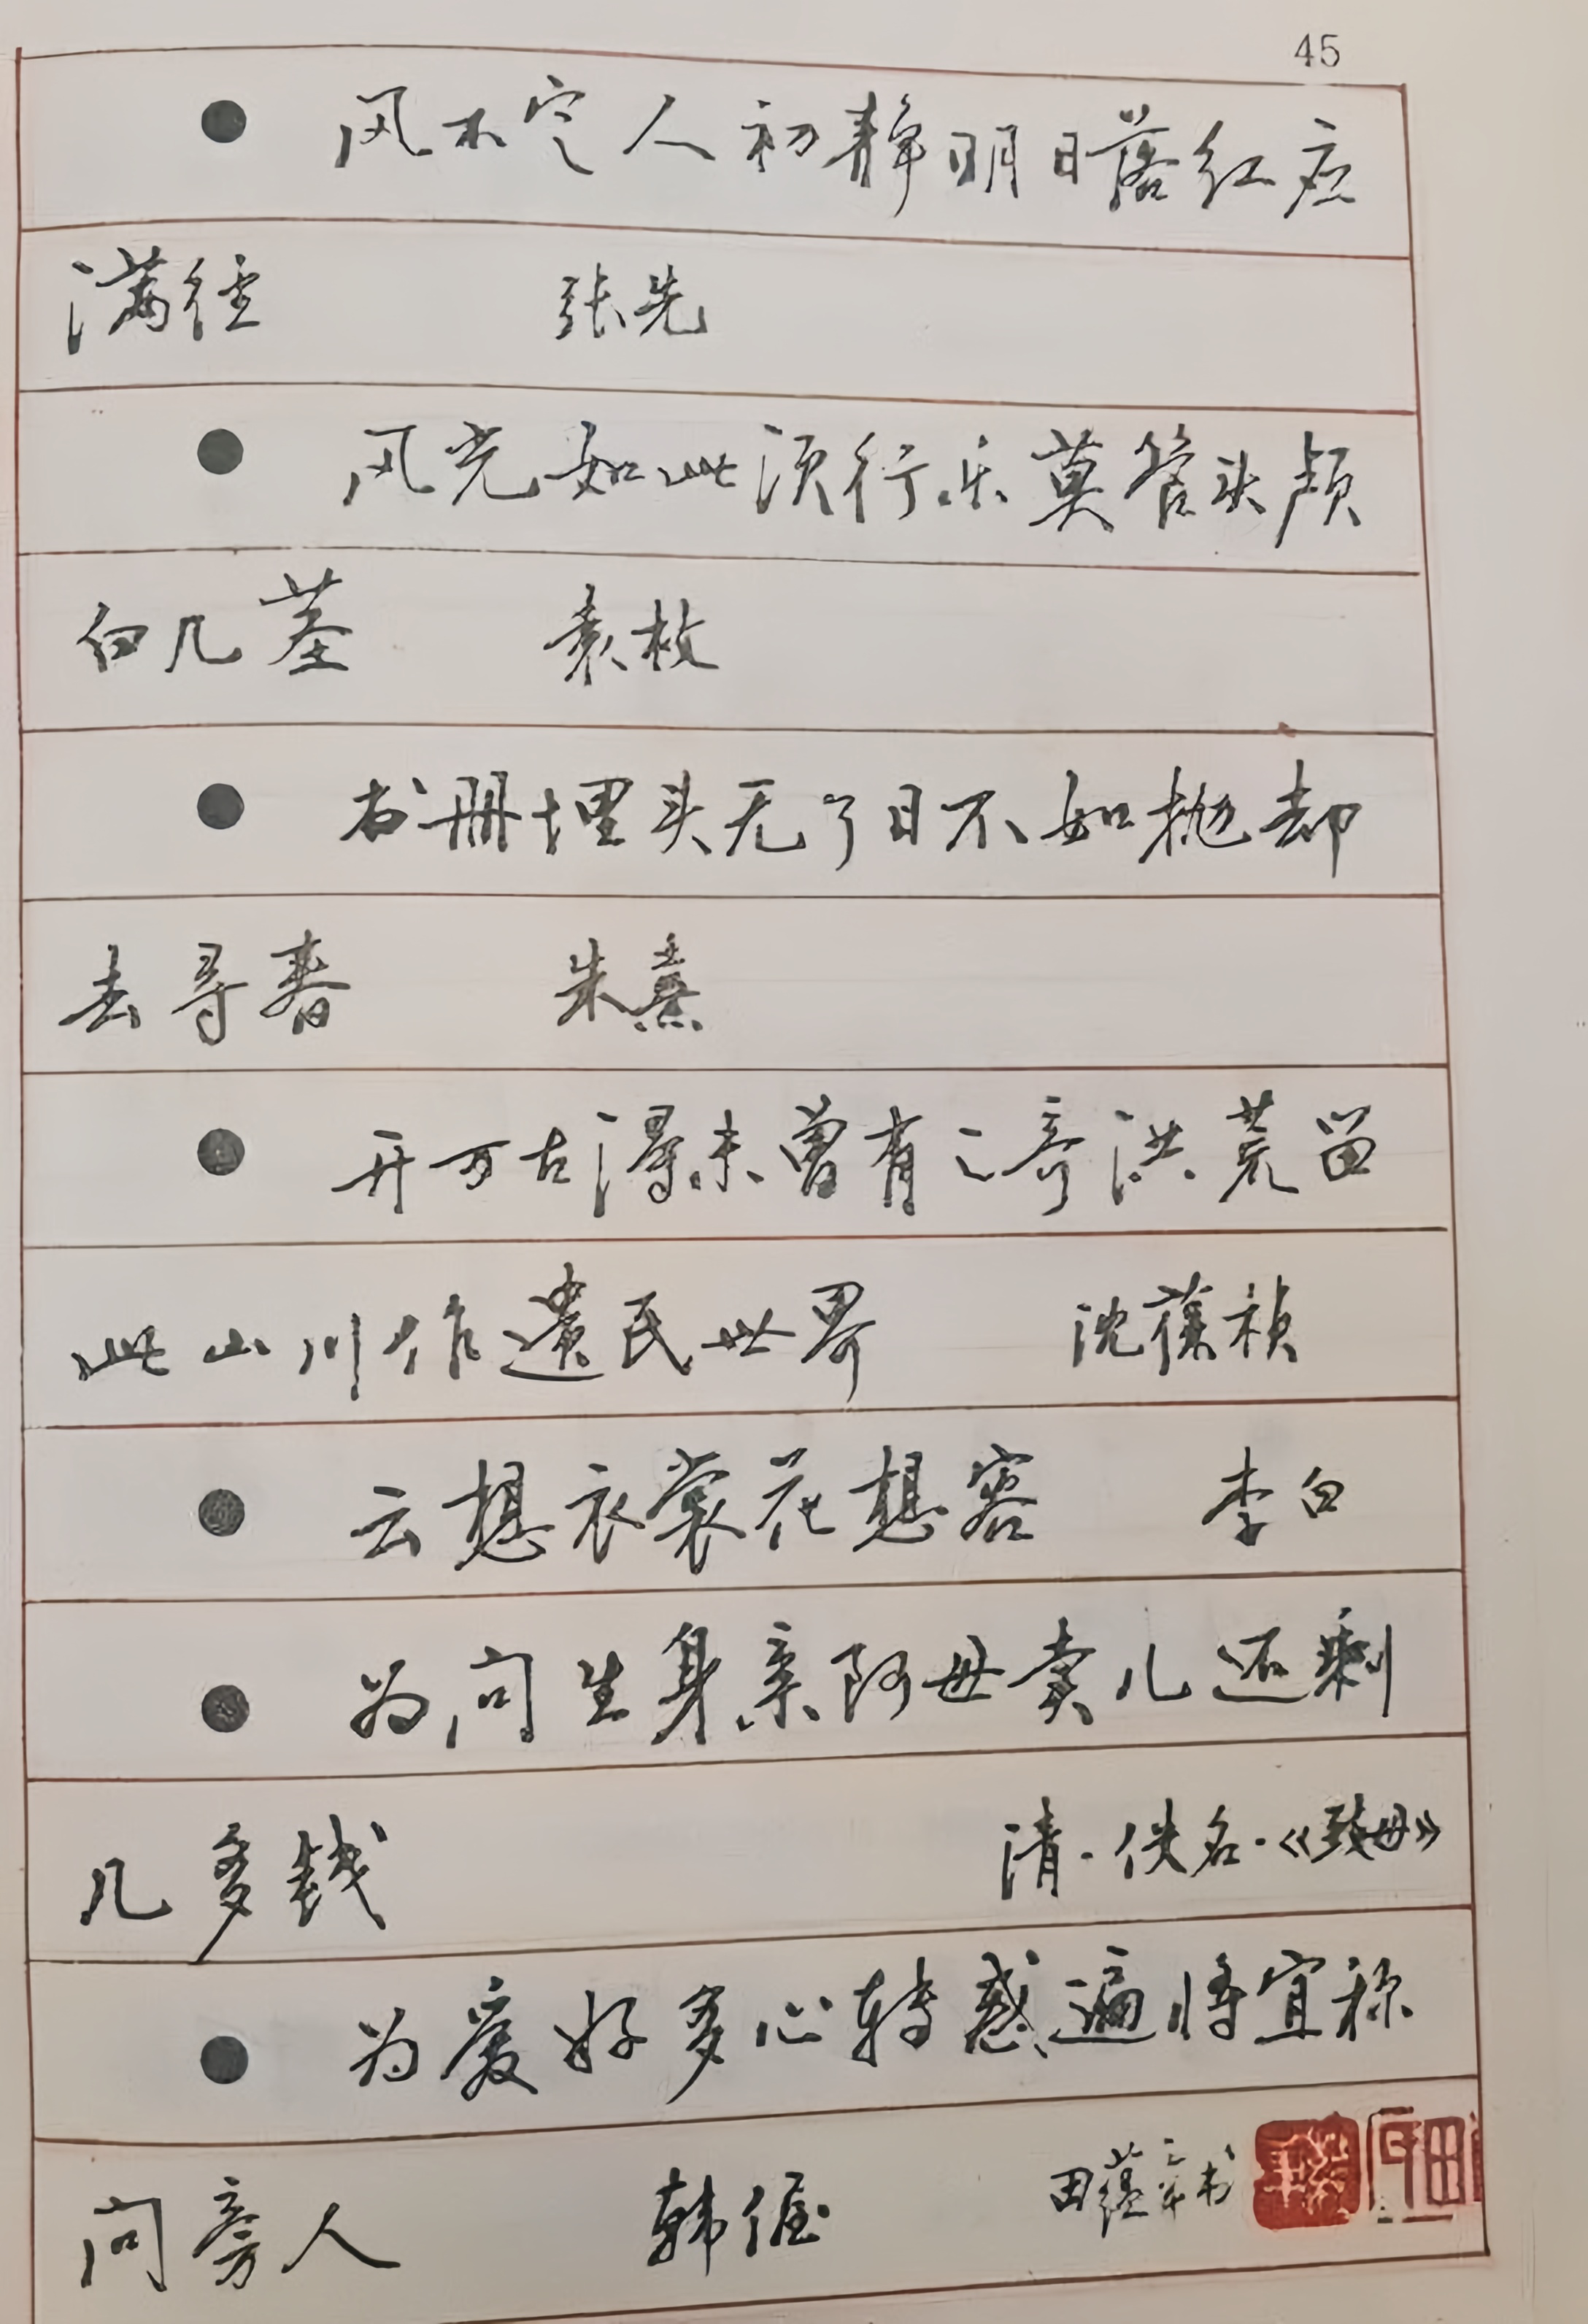 45
● 风不定人初静明日落红应
满径 张先
● 风光如此须行乐莫管头颅
白几茎 袁枚
● 书册埋头无了日不如抛却
去寻春 朱熹
● 开万古得未曾有之奇洪荒留
此山川作遗民世界 沈葆祯
● 云想衣裳花想容 李白
● 为问生身亲阿母卖儿还剩
几多钱 清·佚名·《致母》
● 为爱好多心转惑遍将宜称
问旁人 韩偓 田蕴章书